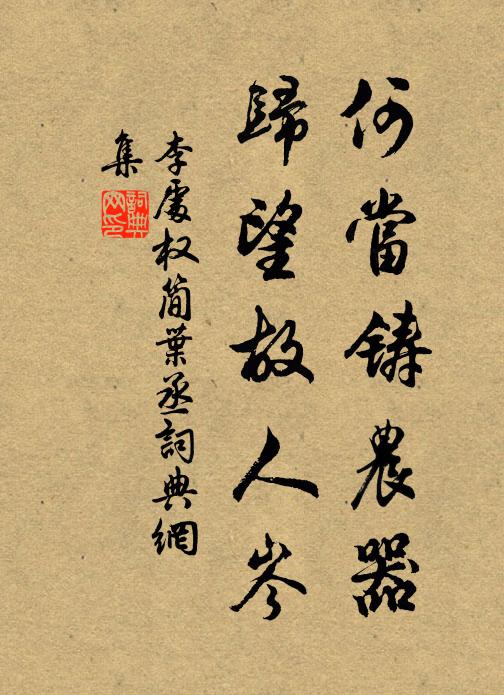 何當鑄農器
歸望故人岑
李處权簡葉丞詞典網
集
詞典网印